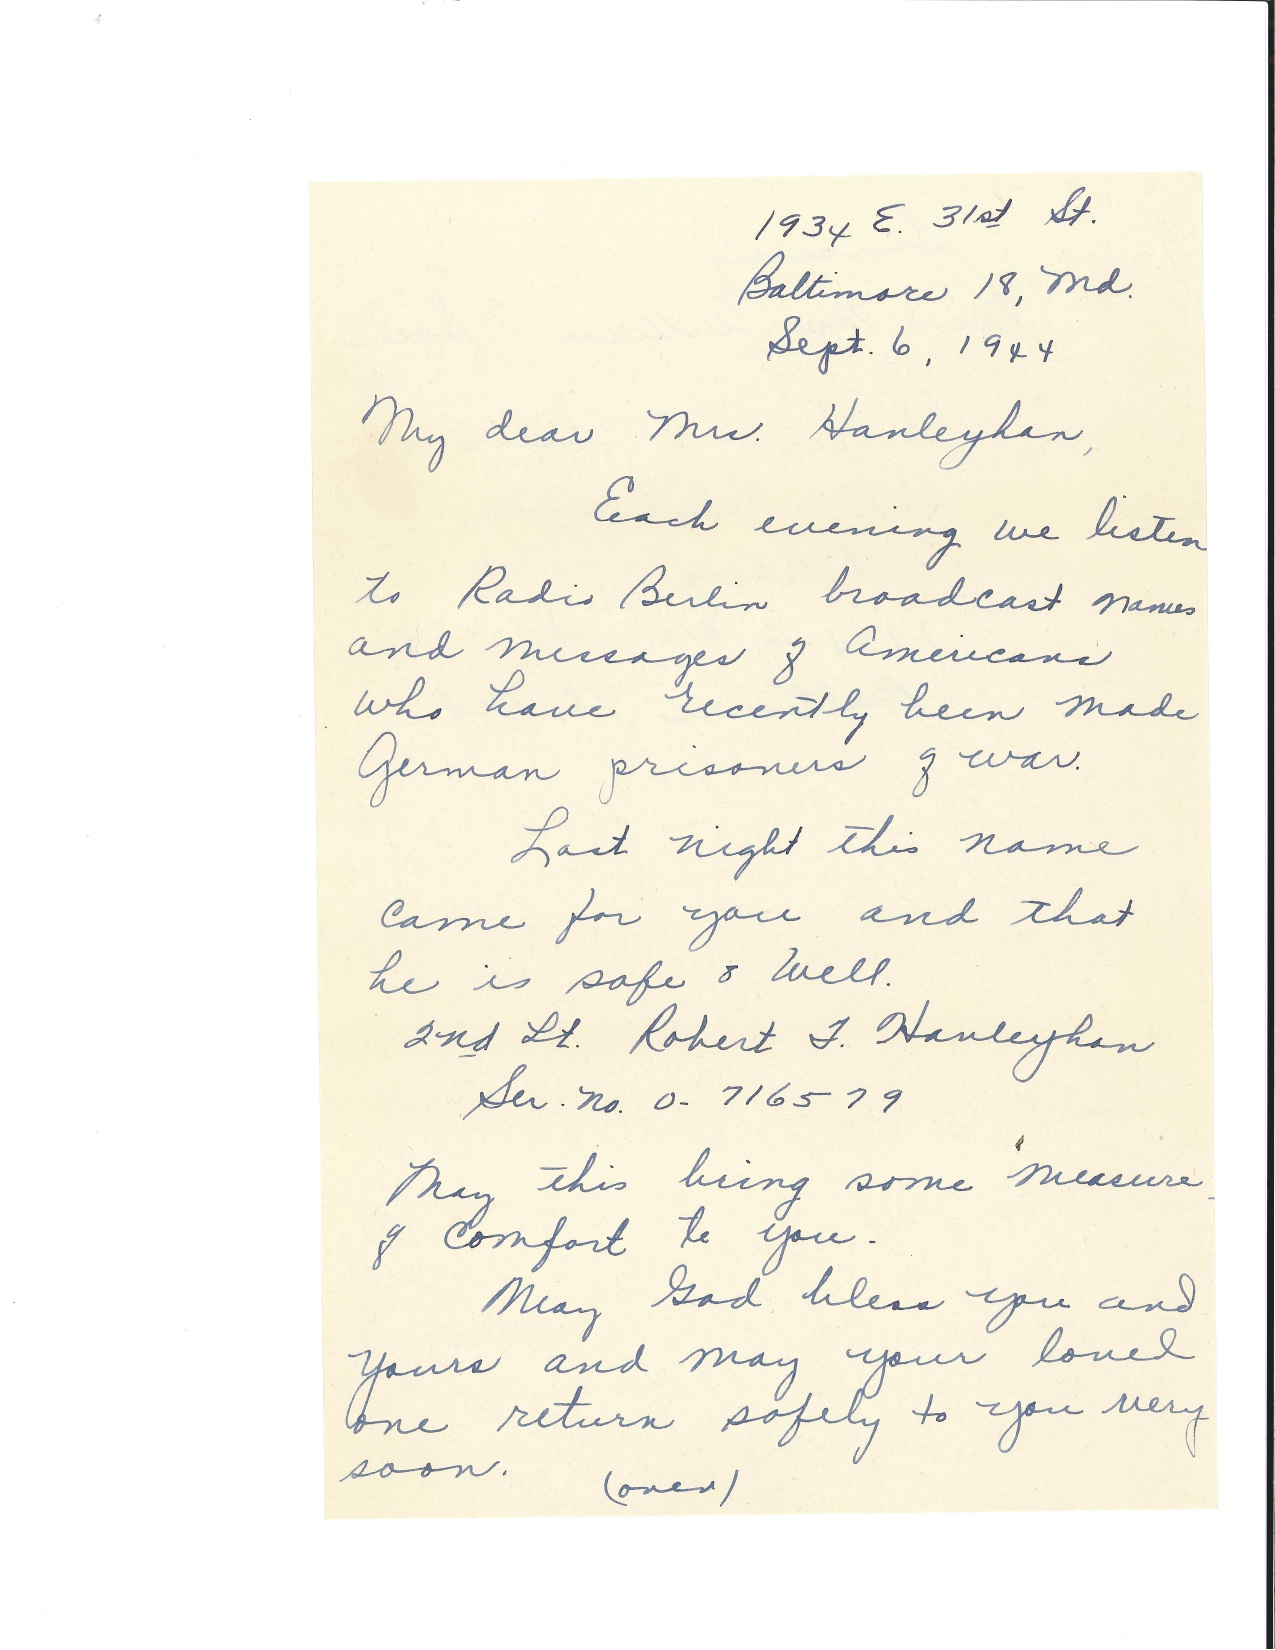 1934 E. 31st St.
Baltimore 18, Md.
Sept. 6, 1944
My dear Mrs. Hanleyhan,
Each evening we listen
to Radio Berlin broadcast names
and messages of Americans
who have recently been made
German prisoners of war.
Last night this name
came for you and that
he is safe & well.
2nd Lt. Robert F. Hanleyhan
Ser. No. O-716579
May this bring some measure
of comfort to you.
May God bless you and
yours and may your loved
one return safely to you very
soon.
(over)